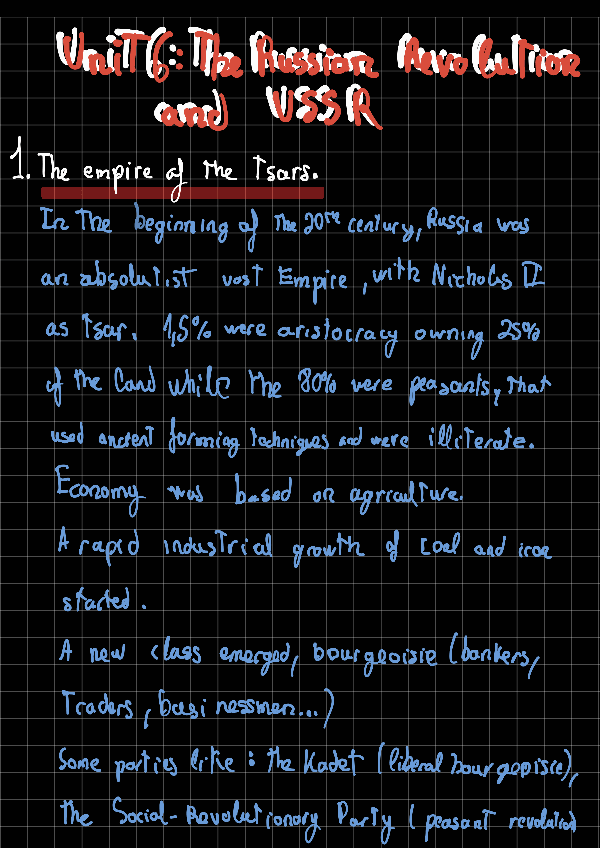 Unit 6: The Russian Revolution
and USSR
1. The empire of the Tsars.
In the beginning of the 20th century, Russia was
an absolutist vast Empire, with Nicholas II
as Tsar. 1,5% were aristocracy owning 25%
of the land while the 80% were peasants, that
used ancient farming techniques and were illiterate.
Economy was based on agriculture.
A rapid industrial growth of coal and iron
started.
A new class emerged, bourgeoisie (bankers,
Traders, businessmen...)
Some parties like: the Kadet (liberal bourgeoisie),
the Social-Revolutionary Party (peasant revolution)